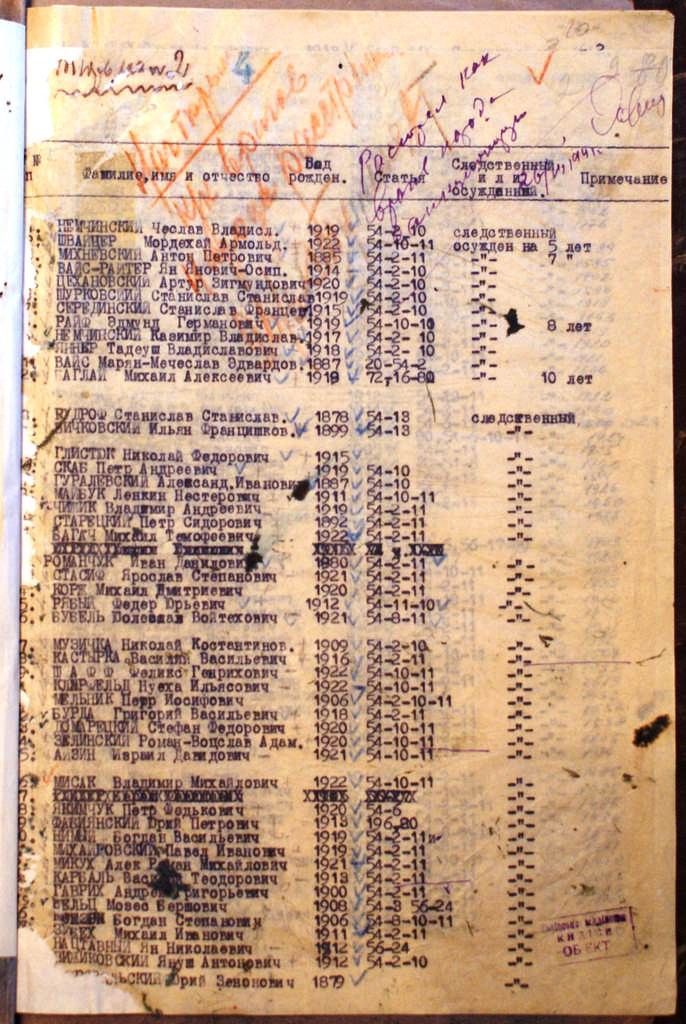 2
4
Расстрел как
врагов народа
№ Фамилие,имя и отчество Год рожден. Статья Следственный или осужденный. Примечание
НЕМЧИНСКИЙ Чеслав Владисл. 1919 54-2-10 следственный
ШВАЙЦЕР Мордехай Армольд. 1922 54-10-11 осужден на 5 лет
МИХНЕВСКИЙ Антон Петрович 1885 54-2-11 -"- 7 "
ВАЙС-РАЙТЕР Ян Янович-Осип. 1914 54-2-11 -"-
ЦЕХАНОВСКИЙ Артур Зигмундович 1920 54-2-10 -"-
ШУРКОВСКИЙ Станислав Станислав 1919 54-2-10 -"-
СЕРЕДИНСКИЙ Станислав Францев 1915 54-2-10 -"-
РАЙФ Эдмунд Германович 1919 54-10-11 -"- 8 лет
НЕМЧИНСКИЙ Казимир Владислав. 1917 54-2-10 -"-
Тадеуш Владиславович 1918 54-2-10 -"-
ВАЙС Марян-Мечеслав Эдвардов. 1887 20-54-2 -"-
ГАГЛАЙ Михаил Алексеевич 1919 72,16-80 -"- 10 лет
Станислав Станислав. 1878 54-13 следственный
Ильян Францишков. 1899 54-13 -"-
ГЛИСТЮК Николай Федорович 1915 -"-
СКАБ Петр Андреевич 1919 54-10 -"-
ГУРАЛЕВСКИЙ Александ.Иванович 1887 54-10 -"-
МАЙБУК Ленкин Нестерович 1911 54-10-11 -"-
Владимир Андреевич 1919 54-2-11 -"-
СТАРЕЦКИЙ Петр Сидорович 1892 54-2-11 -"-
БАГАЧ Михаил Темофеевич 1922 54-2-11 -"-
РОМАНЧУК Иван Данилович 1980 54-2-11 -"-
СТАСИФ Ярослав Степанович 1921 54-2-11 -"-
КОРЖ Михаил Дмитриевич 1920 54-2-11 -"-
РЯБЫЙ Федер Юрьевич 1912 54-11-10 -"-
БУБЕЛЬ Болеслав Войтехович 1921 54-8-11 -"-
МУЗИЧКА Николай Костантинов. 1909 54-2-10 -"-
КАСТЫРКА Василий Васильевич 1916 54-2-11 -"-
Ш А Ф Ф Феликс Генрихович 1922 54-10-11 -"-
КЛЯРФЕЛЬД Нуеха Ильясович 1922 54-10-11 -"-
МЕЛЬНИК Петр Иосифович 1906 54-2-10-11 -"-
БУРДА Григорий Васильевич 1918 54-2-11 -"-
ДОМАРЕЦКИЙ Стефан Федорович 1920 54-10-11 -"-
ЗЕЛИНСКИЙ Роман-Воцслав Адам. 1920 54-10-11 -"-
АЙЗИН Израил Давидович 1921 54-10-11 -"-
МИСАК Владимир Михайлович 1922 54-10-11 -"-
ЯКИМЧУК Петр Федькович 1920 54-6 -"-
ФАБИЯНСКИЙ Юрий Петрович 1918 196-20 -"-
Богдан Васильевич 1919 54-2-11 -"-
МИХАЙРОВСКИЙ Павел Иванович 1919 54-2-11 -"-
МИКУХ Алек Роман Михайлович 1921 54-2-11 -"-
КАРБАЛЬ Теодорович 1913 54-2-11 -"-
ГАВРИХ Андрей Григорьевич 1900 54-2-11 -"-
ВЕЛЬЦ Мозес Бершович 1908 54-3 56-24 -"-
Богдан Степанович 1906 54-8-10-11 -"-
Михаил Иванович 1911 54-2-11 -"-
НАЦТАВНЫЙ Ян Николаевич 1912 56-24 -"-
ВИЖИКОВСКИЙ Януш Антонович 1912 54-2-10 -"-
Юрий Зенонович 1879 -"-